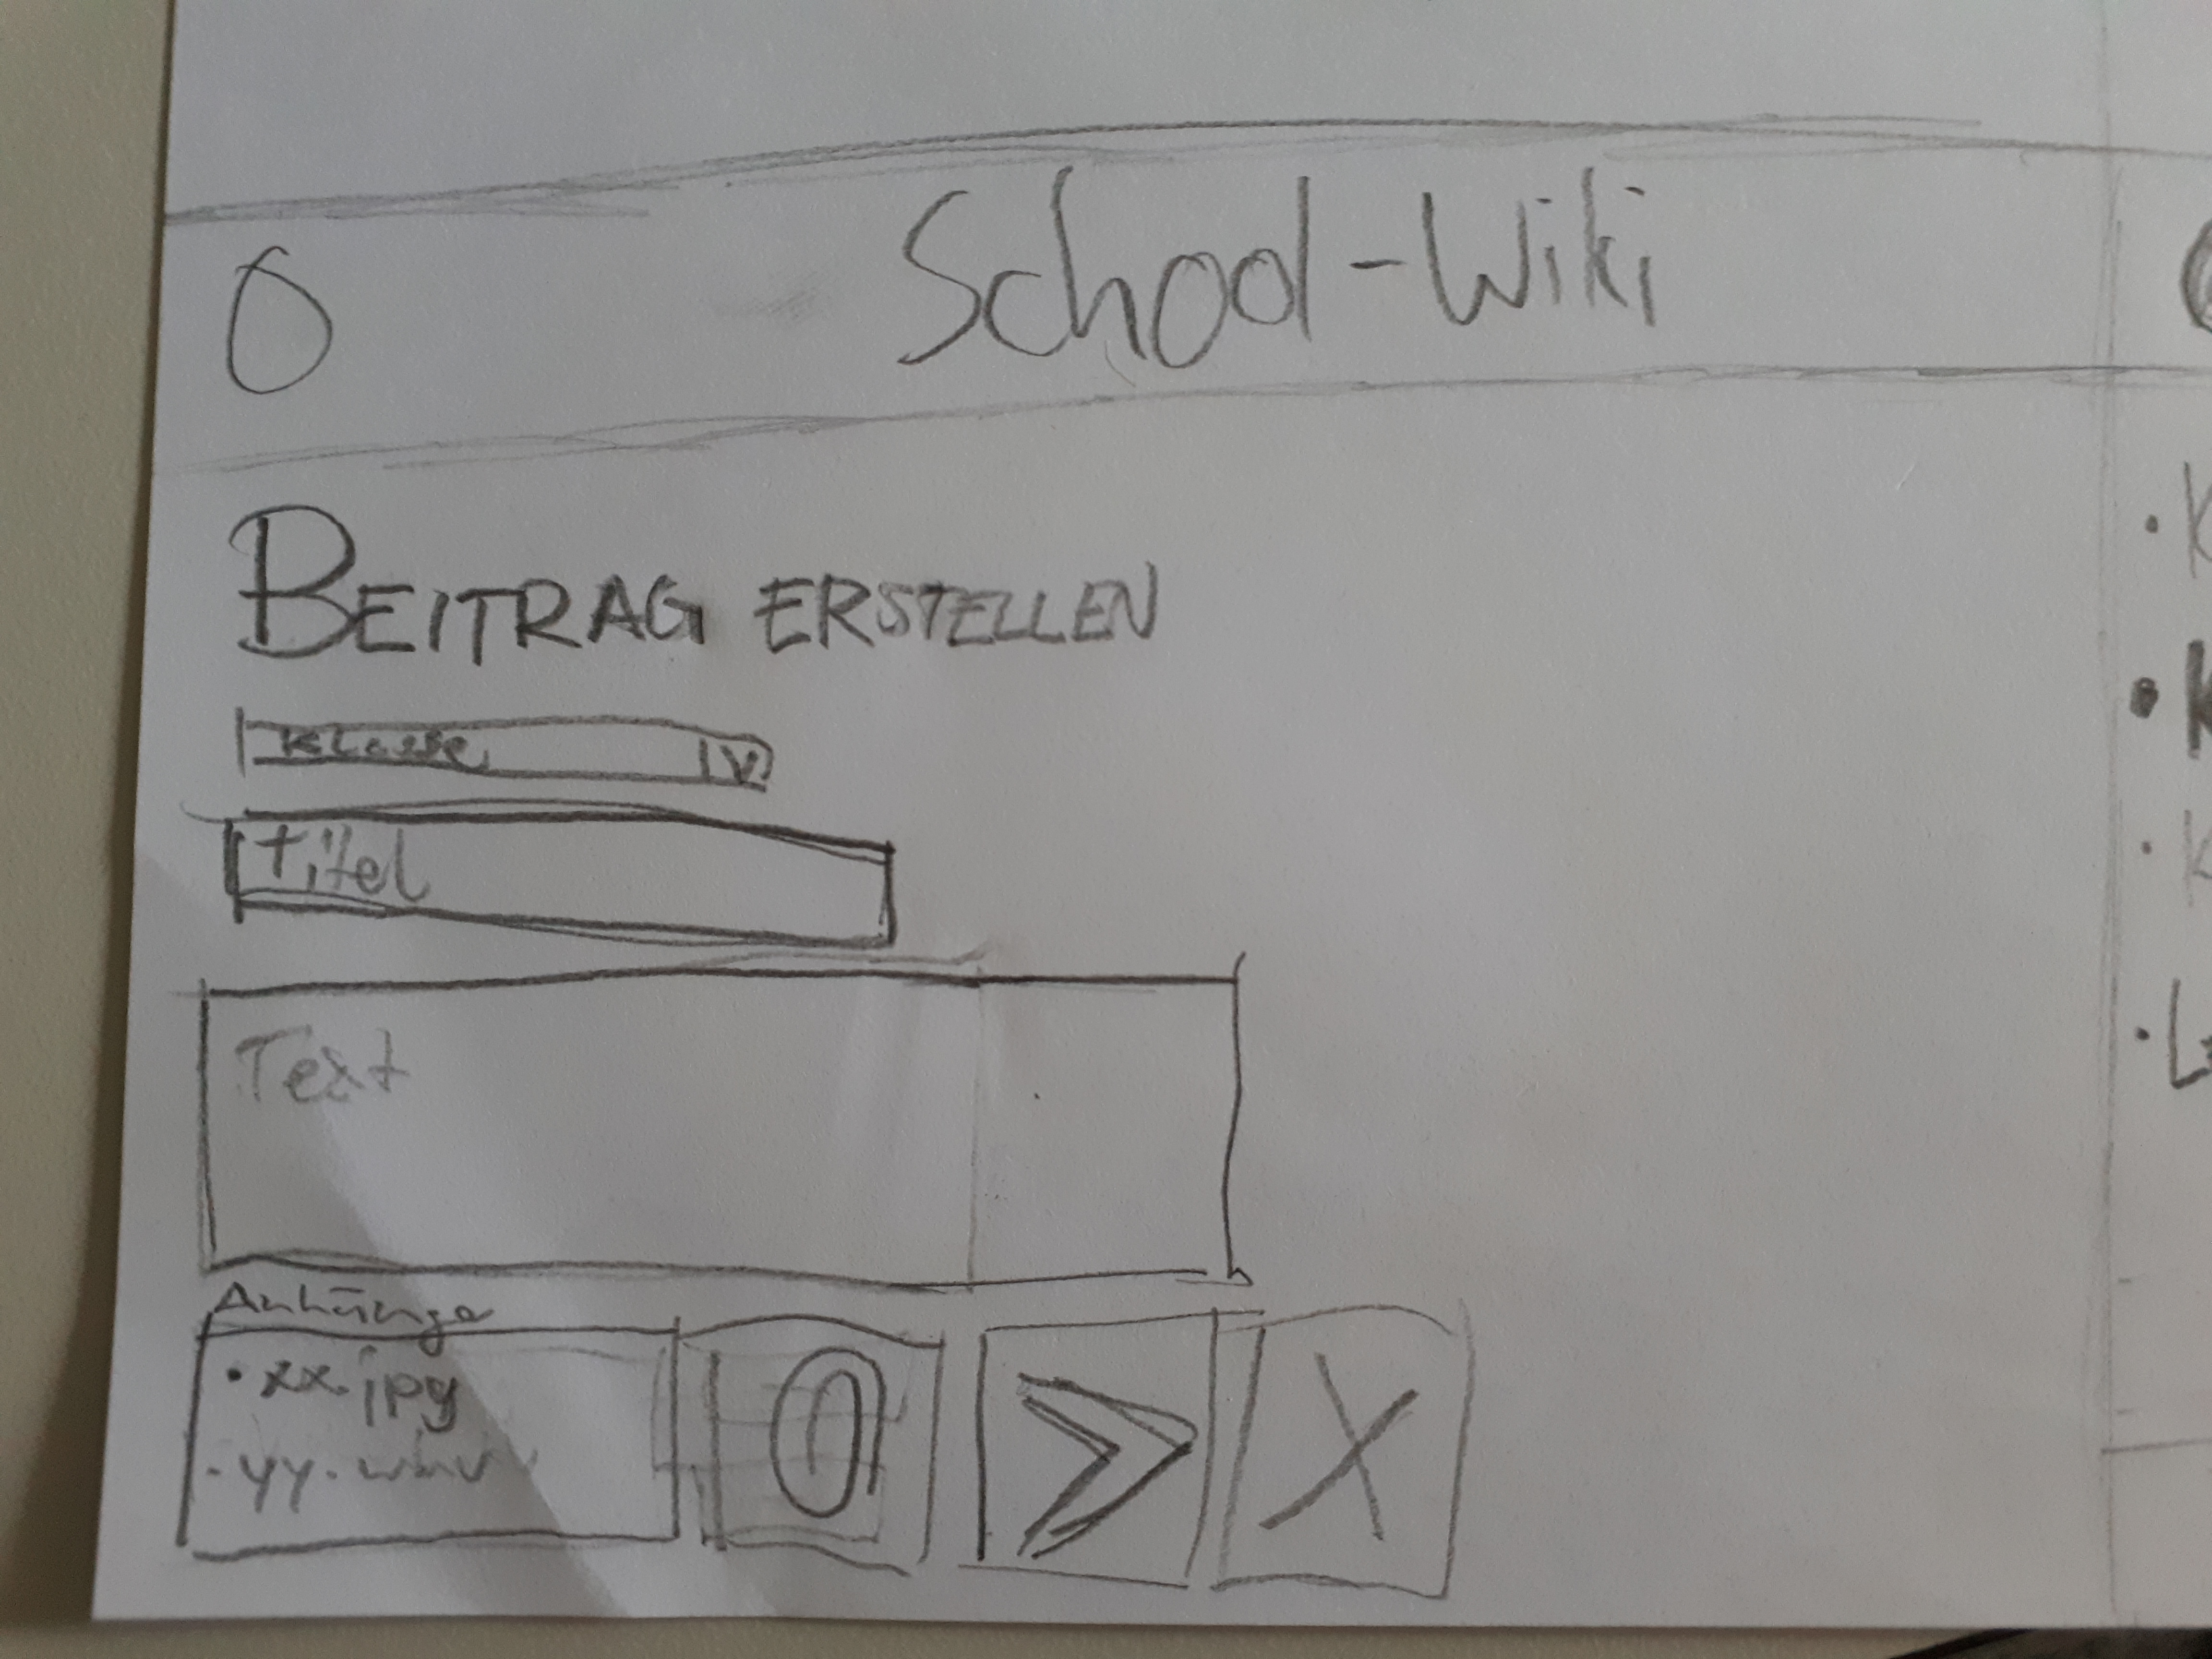 School-Wiki
BEITRAG ERSTELLEN
Klasse
Titel
Text
Anhänge
• xx.jpg
· yy.wmv
X